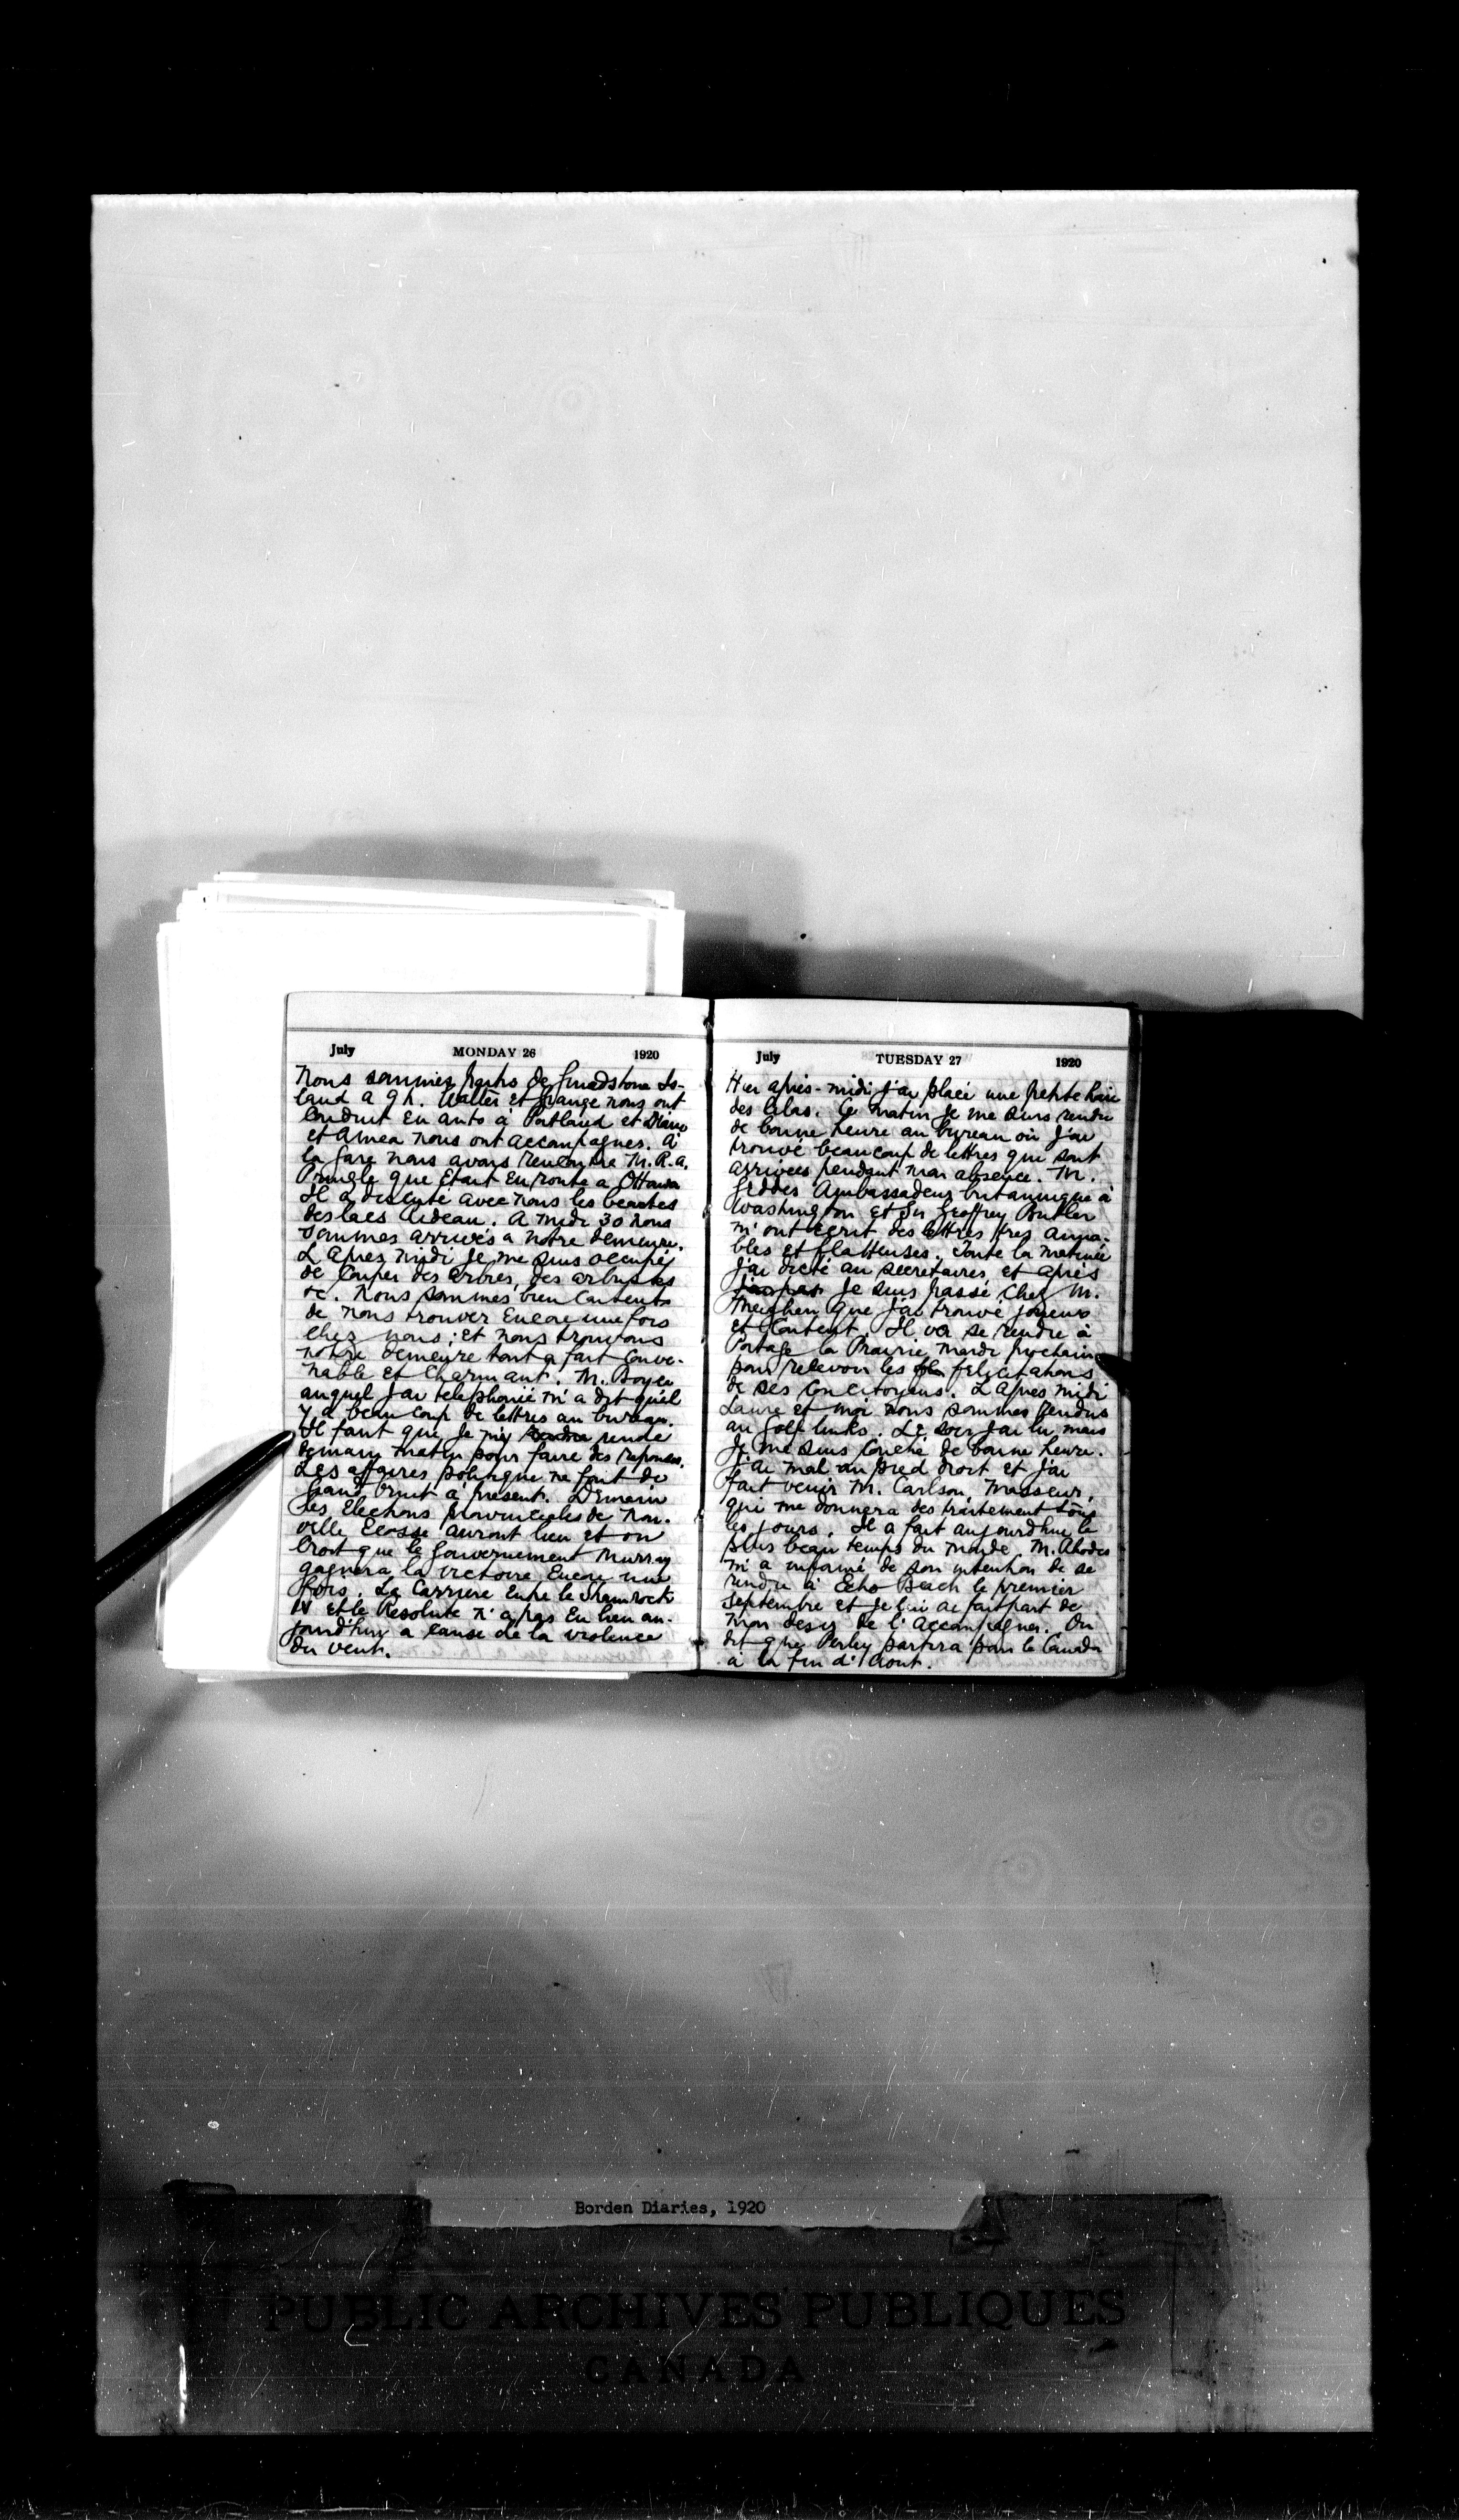 July MONDAY 26 1920
Nous sommes partis de Grindstone Is-
land a 9 h. Walter et Grange nous ont
conduit en auto à Portland et Diana
et Amea nous ont accompagnes. A
la gare nous avons rencontre M. R. A.
Pringle que était en route a Ottawa
Il a discuté avec nous les beautes
des lacs Rideau. A midi 30 nous
sommes arrivés a notre demeure.
L'apres midi je me suis occupé
de couper des arbres, des arbustes
&c. Nous sommes bien contents
de nous trouver encore une fois
chez nous; et nous trouvons
notre demeure tout a fait conve-
nable et charmant. M. Boyce
auquel j'ai telephonié m'a dit qu'il
y a beaucoup de lettres au bureau.
Il faut que je m'y rendre rende
demain matin pour faire des reponses.
Les affaires politique ne fait de
grand bruit à présent. Demain
les Elections provinciales de Nou-
velle Ecosse auront lieu et on
croit que le gouvernement Murray
gagnera la victoire encore une
fois. La Carriere entre le Shamrock
IV et le Resolute n'a pas eu lieu au-
jourd'huy a cause de la violence
du vent.
July TUESDAY 27 1920
Hier après-midi j'ai placé une petite haie
des lilas. Ce matin je me suis rendu
de bonne heure au bureau où j'ai
trouvé beaucoup de lettres que sont
arrivées pendant mon absence. M.
Geddes Ambassadeur britannique à
Washington et Sir Geoffrey Butler
m'ont écrit des lettres tres aima-
bles et flatteuses. Toute la matinée
j'ai dicté au secretaires et après
je suis passé chez M.
Meighen que j'ai trouvé joyeux
et content. Il va se rendre à
Portage la Prairie mardi prochain
pour recevoir les felicitations
de ses concitoyens. L'apres midi
Laure et moi nous sommes rendus
au golf links. Le soir j'ai lu mais
je me suis couché de bonne heure.
J'ai mal au pied droit et j'ai
fait venir M. Carlson, Masseur,
qui me donnera des traitement tous
les jours. Il a fait aujourd'hui le
plus beau temps du monde. M. Rhodes
m'a informé de son intention de se
rendre à Echo Beach le premier
septembre et je lui ai fait part de
mon desir de l'accompagner. On
dit que Perley partira pour le Canada
a la fin d'Aout.
Borden Diaries, 1920
PUBLIC ARCHIVES PUBLIQUES
CANADA